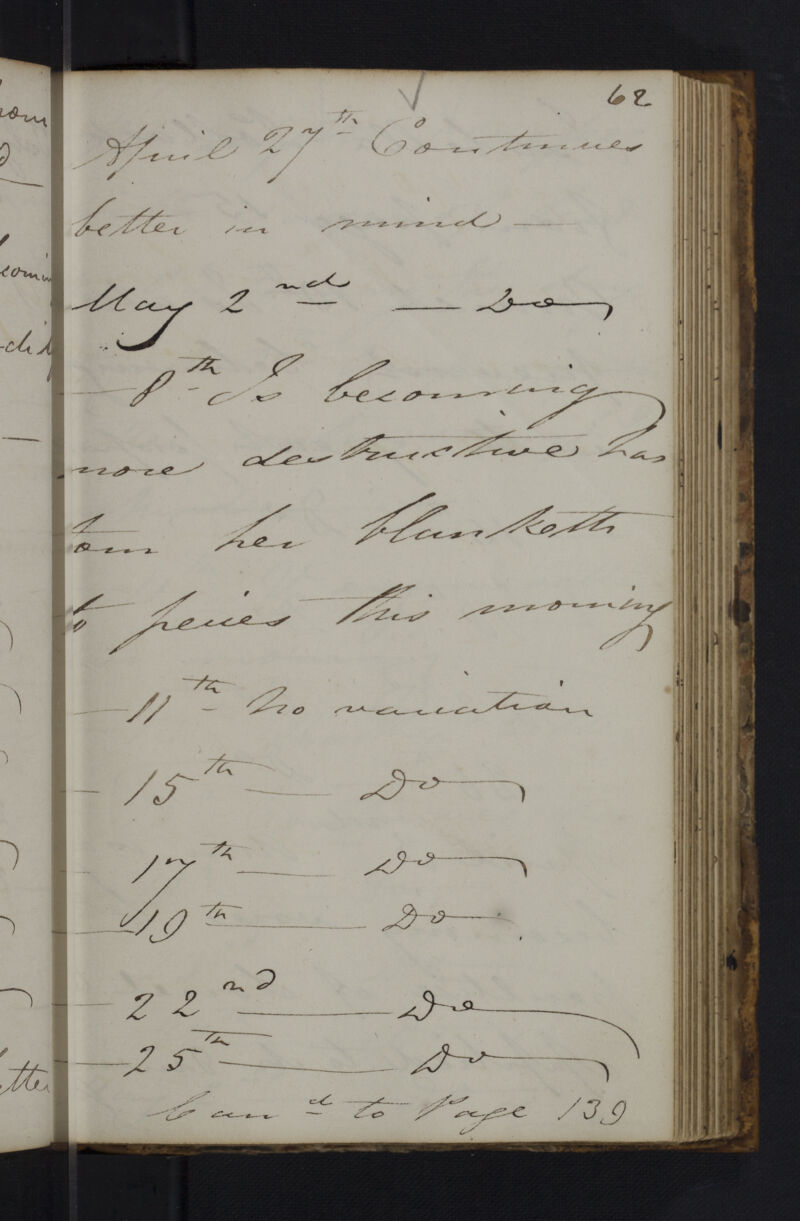 62
April 27th Continues
better in mind —
May 2nd — Do
— 8th Is becomming
more destructive has
torn her blanketts
to peices this morning
— 11th No variation
— 15th — Do
— 17th — Do
— 19th — Do
— 22nd — Do
— 25th — Do
Carrd to Page 139